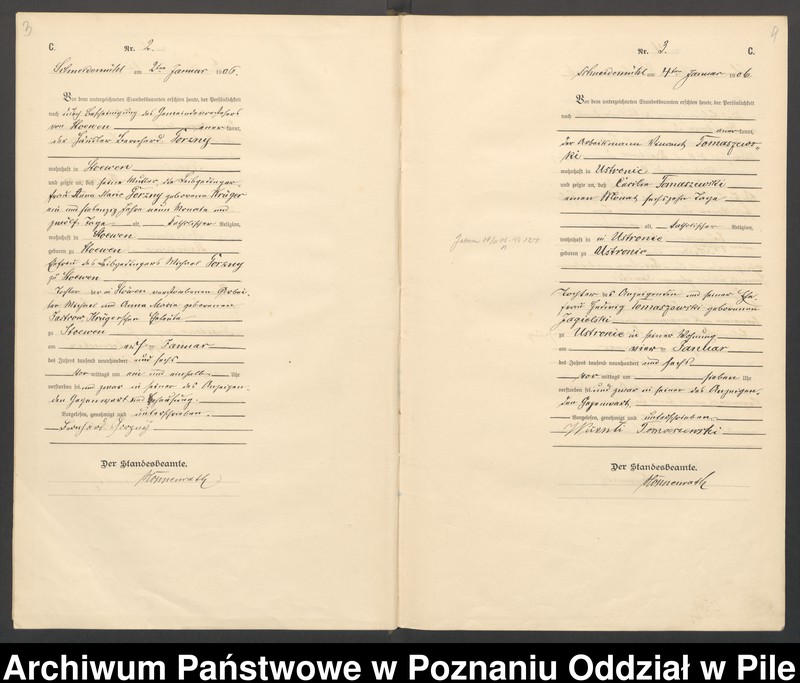 3
C.
Nr. 2.
Schneidemühl am 2ten Januar 1906.
Vor dem unterzeichneten Standesbeamten erschien heute, der Persönlichkeit
nach durch Bescheinigung des Gemeindevorstehers
von Stoewen anerkannt,
der Häusler Bernhard Torzny
wohnhaft in Stoewen
und zeigte an, daß seine Mutter, die Leibgedinger-
frau Anna Marie Torzny geborene Krüger
ein und siebenzig Jahre neun Monate und
zwölf Tage alt, katholischer Religion,
wohnhaft in Stoewen
geboren zu Stoewen
Ehefrau des Leibgedingers Michael Torzny
zu Stoewen
Tochter der in Stöwen verstorbenen Arbei-
ter Michael und Anna Maria geborenen
Jastrow Krügerschen Eheleute
zu Stoewen
am Januar
des Jahres tausend neunhundert und sechs
Vor mittags um ein und einhalb Uhr
verstorben sei und zwar in seiner des Anzeigen-
den Gegenwart und Behausung.
Vorgelesen, genehmigt und unterschrieben.
Bernhard Torzny
Der Standesbeamte.
Könnenrath
C.
Nr. 3.
Schneidemühl am 4ten Januar 1906.
Vor dem unterzeichneten Standesbeamten erschien heute, der Persönlichkeit
nach
anerkannt,
der Arbeitsmann Tomaszews-
ki
wohnhaft in Ustronie
und zeigte an, daß Cäcilia Tomaszewski
einen Monat sechszehn Tage
alt, katholischer Religion,
wohnhaft in Ustronie
geboren zu Ustronie
Tochter des Anzeigenden und seiner Ehe-
frau Hedwig Tomaszewski geborenen
Jagielski
zu Ustronie in seiner Wohnung
am vier Januar
des Jahres tausend neunhundert und sechs
Vor mittags um sieben Uhr
verstorben sei und zwar in seiner des Anzeigen-
den Gegenwart.
Vorgelesen, genehmigt und unterschrieben.
Tomaszewski
Der Standesbeamte.
Könnenrath
Archiwum Państwowe w Poznaniu Oddział w Pile